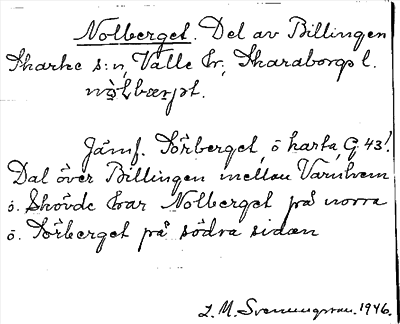 Nolberget. Del av Billingen
Skarke s:n, Valle hr, Skaraborgs l.
Jämf. Sörberget, ö karta, G. 43!
Dal över Billingen mellan Varnhem
o. Skövde har Nolberget på norra
o. Sörberget på södra sidan
L. M. Svenungsson. 1946.